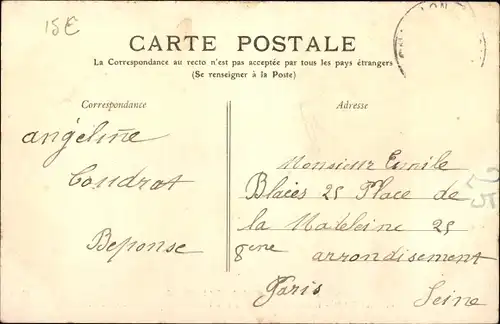 15€
CARTE POSTALE
La Correspondance au recto n'est pas acceptée par tous les pays étrangers
(Se renseigner à la Poste)
Correspondance
angéline
Coudrat
Réponse
Adresse
Monsieur Emile
Blaies 25 Place de
la Madeleine 25
8eme arrondisement
Paris Seine